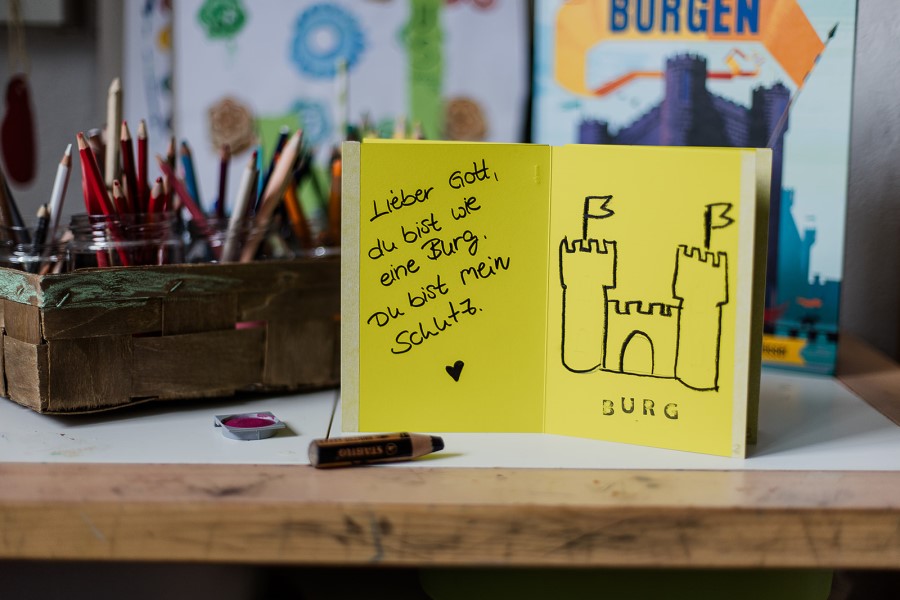 BURGEN
Lieber Gott,
du bist wie
eine Burg.
Du bist mein
Schutz.
BURG
STABILO